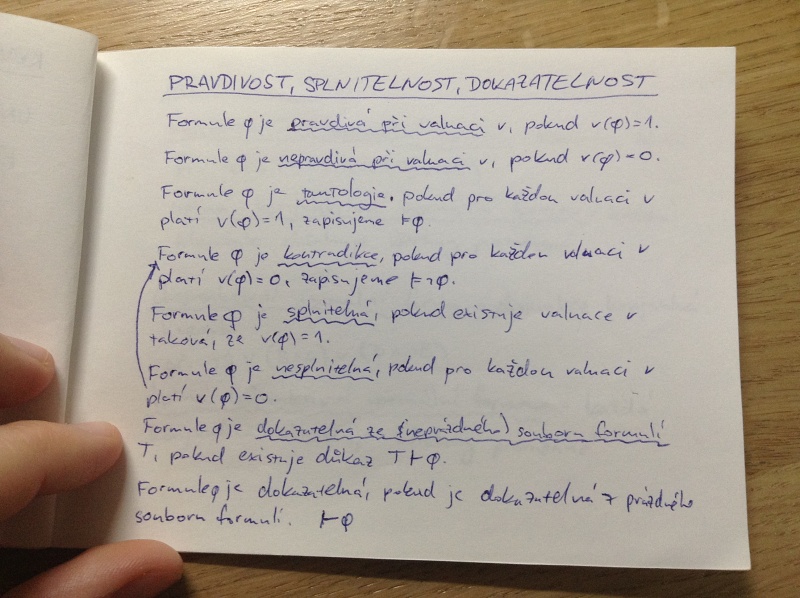 PRAVDIVOST, SPLNITELNOST, DOKAZATELNOST
Formule φ je pravdivá při valuaci v, pokud v(φ)=1.
Formule φ je nepravdivá při valuaci v, pokud v(φ)=0.
Formule φ je tautologie, pokud pro každou valuaci v
platí v(φ)=1, zapisujeme ⊨φ.
Formule φ je kontradikce, pokud pro každou valuaci v
platí v(φ)=0, zapisujeme ⊨¬φ.
Formule φ je splnitelná, pokud existuje valuace v
taková, že v(φ)=1.
Formule φ je nesplnitelná, pokud pro každou valuaci v
platí v(φ)=0.
Formule φ je dokazatelná ze (neprázdného) souboru formulí
T, pokud existuje důkaz T⊢φ.
Formule φ je dokazatelná, pokud je dokazatelná z prázdného
souboru formulí. ⊢φ